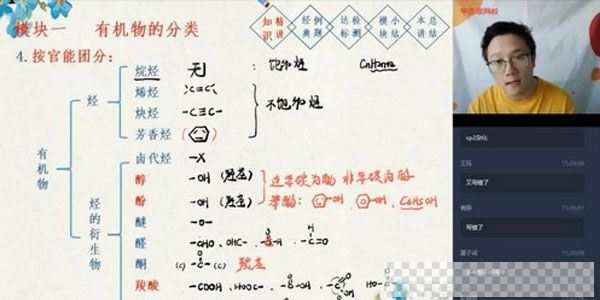 模块一 有机物的分类
知识 精讲 经典 例题 达标 检测 模块 小结 本总 讲结
学而思网校
4.按官能团分：
有机物
烃
烷烃 无 : 饱和烃 CnH2n+2
烯烃 >C=C<
炔烃 -C≡C-
不饱和烃
芳香烃
烃的衍生物
卤代烃 -X
醇 -OH (羟基)
酚 -OH (羟基)
苯酚: -OH, -OH, C6H5OH
醚 -O-
醛 -CHO, OHC-
酮 (C) -C- (C) 羰基
羧酸 -COOH, HOOC-
sp2杂化
王珏 15:29:56
又写错了
15:30:01
写错了
15:30:06